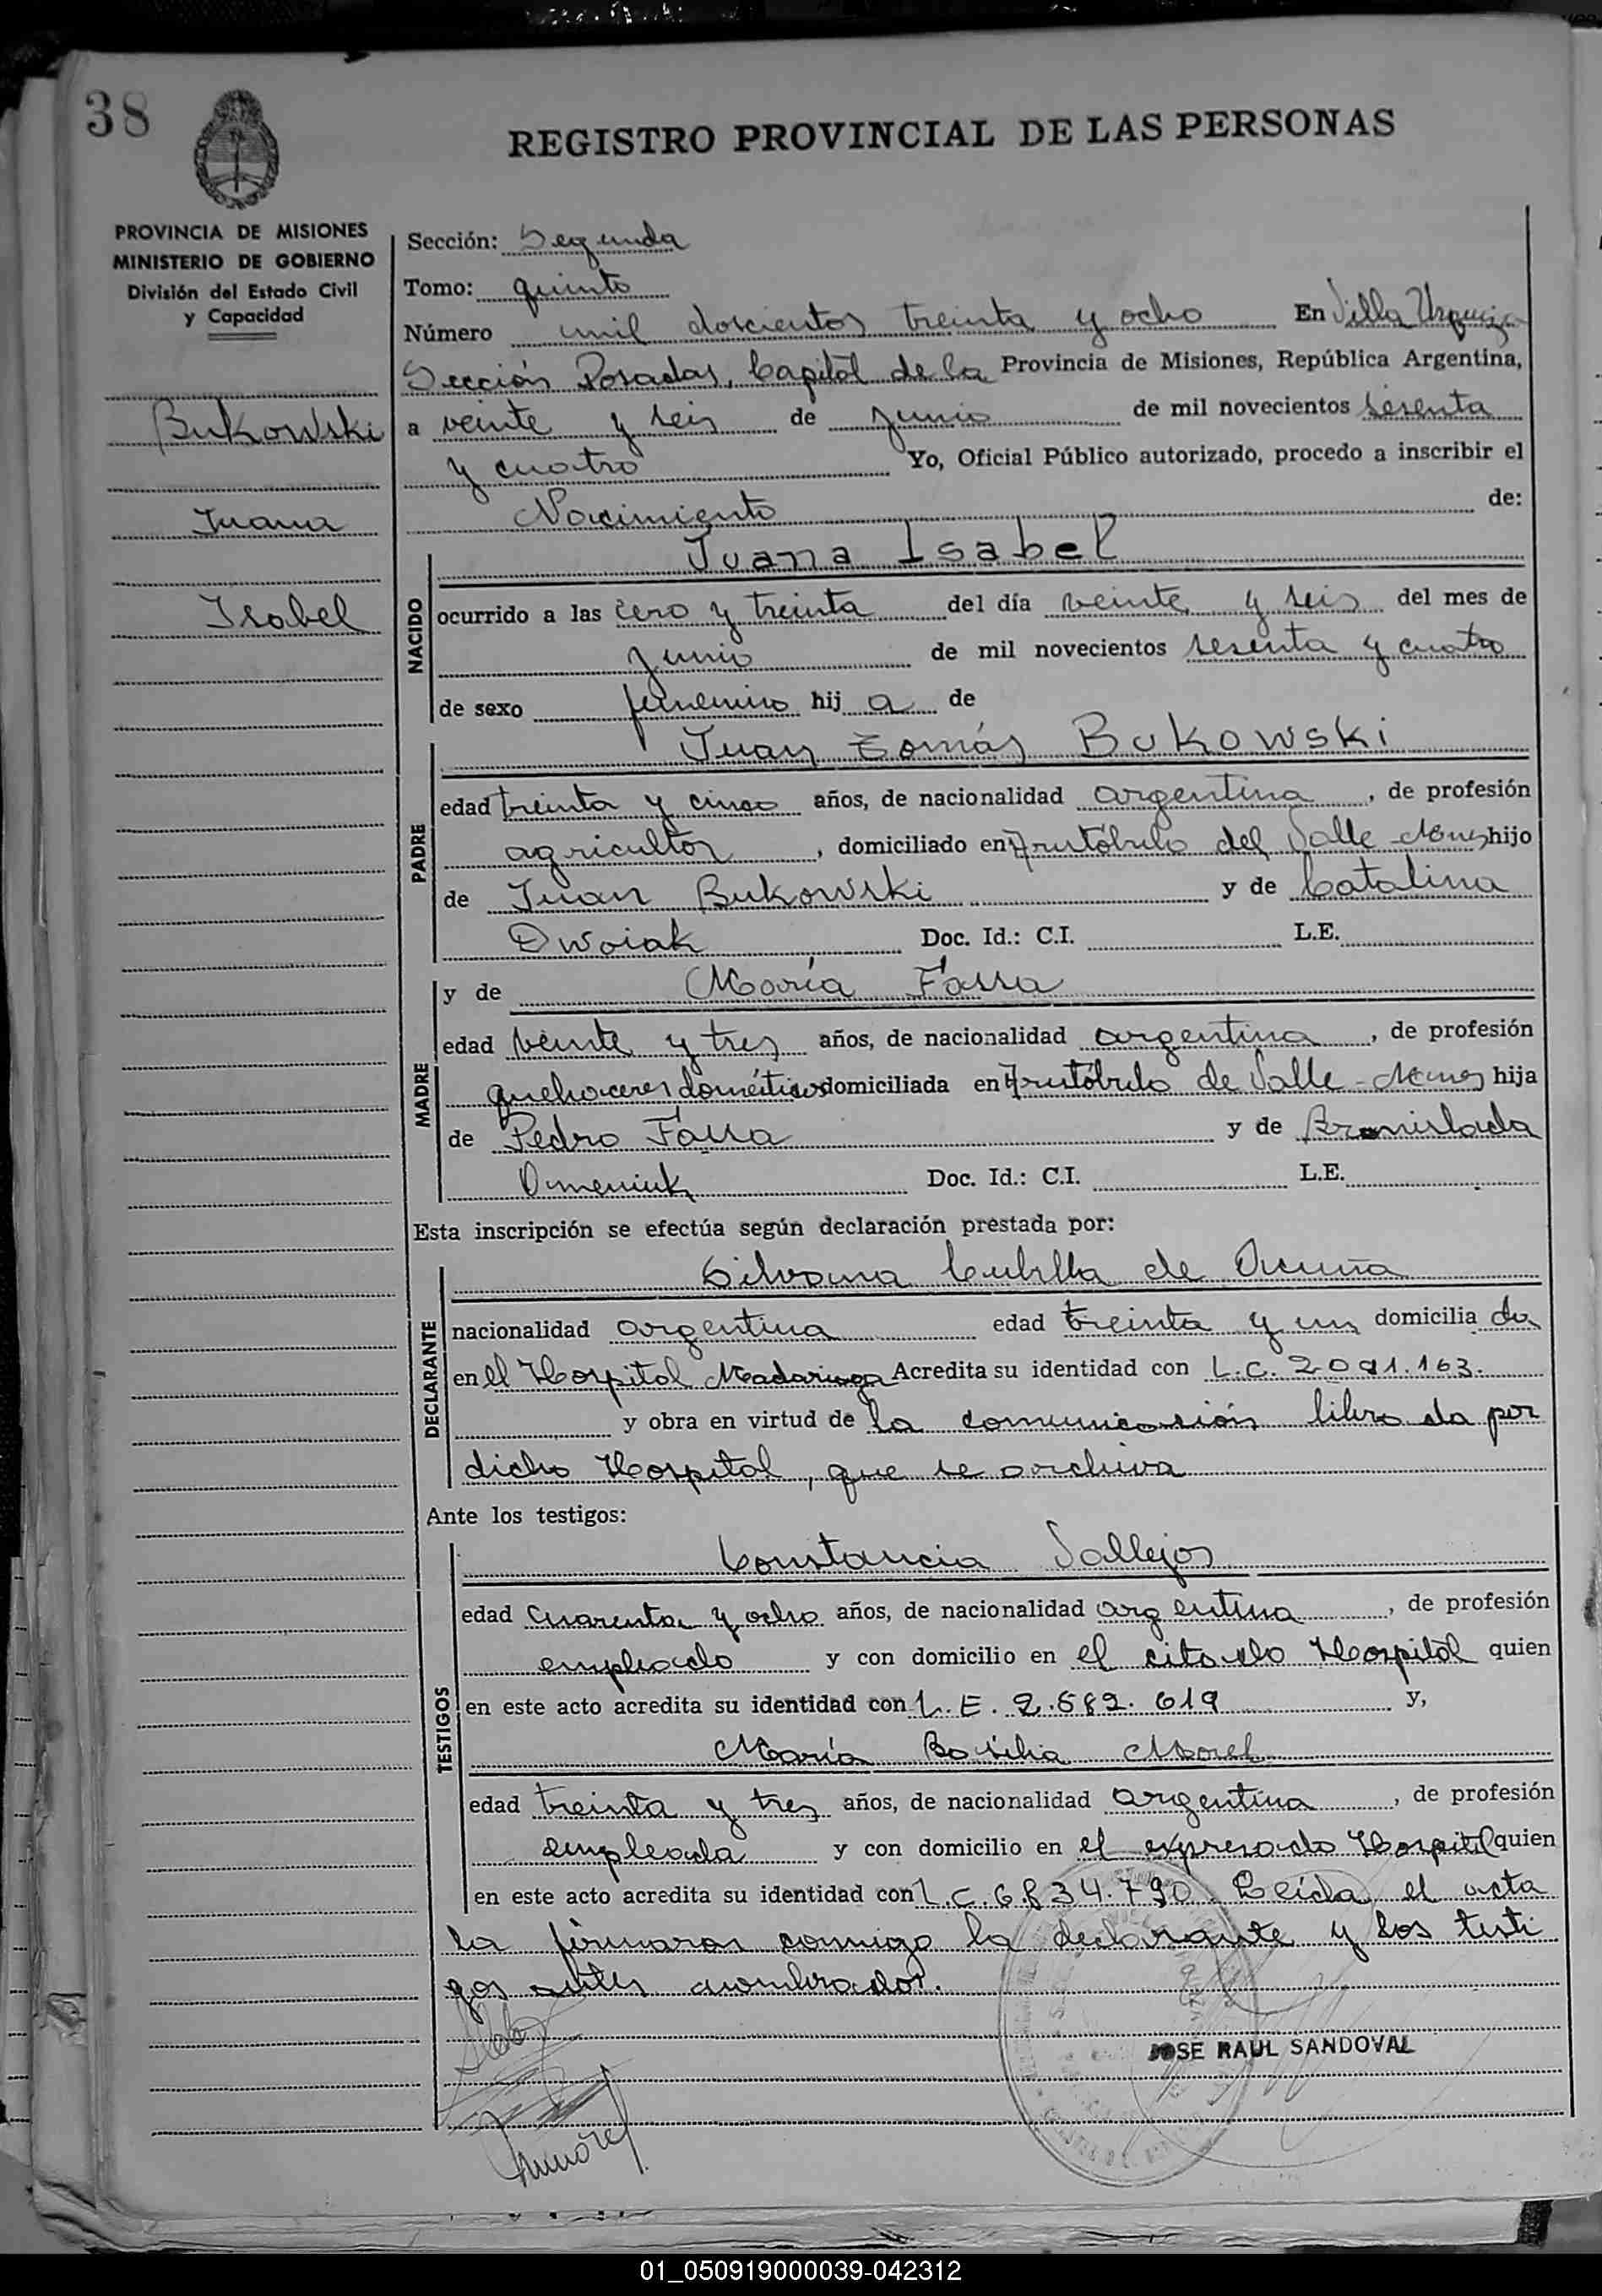 38
REGISTRO PROVINCIAL DE LAS PERSONAS
PROVINCIA DE MISIONES
MINISTERIO DE GOBIERNO
División del Estado Civil
y Capacidad
Bukowski
Juana
Isabel
Sección: Segunda
Tomo: quinto
Número mil doscientos treinta y ocho En Villa Urquiza
Sección Posadas, Capital de la Provincia de Misiones, República Argentina,
a veinte y seis de junio de mil novecientos sesenta
y cuatro Yo, Oficial Público autorizado, procedo a inscribir el
Nacimiento de:
NACIDO
Juana Isabel
ocurrido a las cero y treinta del día veinte y seis del mes de
junio de mil novecientos sesenta y cuatro
de sexo femenino hij a de
PADRE
Juan Tomás Bukowski
edad treinta y cinco años, de nacionalidad argentina, de profesión
agricultor, domiciliado en Aristóbulo del Valle Mnes hijo
de Juan Bukowski y de Catalina
Dwoiak Doc. Id.: C.I. L.E.
MADRE
y de María Farra
edad veinte y tres años, de nacionalidad argentina, de profesión
quehaceres domésticos domiciliada en Aristóbulo de Valle - Mnes hija
de Pedro Farra y de Bronislada
Omeniuk Doc. Id.: C.I. L.E.
Esta inscripción se efectúa según declaración prestada por:
DECLARANTE
Silvana Cubilla de Acuña
nacionalidad argentina edad treinta y un domicilia da
en el Hospital Madariaga Acredita su identidad con L.C. 2.091.163.
y obra en virtud de la comunicación libra da por
dicho Hospital, que se archiva
Ante los testigos:
TESTIGOS
Constancia Vallejos
edad cuarenta y ocho años, de nacionalidad argentina, de profesión
empleado y con domicilio en el citado Hospital quien
en este acto acredita su identidad con L.E. 2.582.619 y,
María Basilia Morel
edad treinta y tres años, de nacionalidad argentina, de profesión
empleada y con domicilio en el expresado Hospital quien
en este acto acredita su identidad con L.C. 6.834.790. Leída el acta
la firmaron conmigo la declarante y los testi
gos antes nombrados.
JOSE RAUL SANDOVAL
01_050919000039-042312